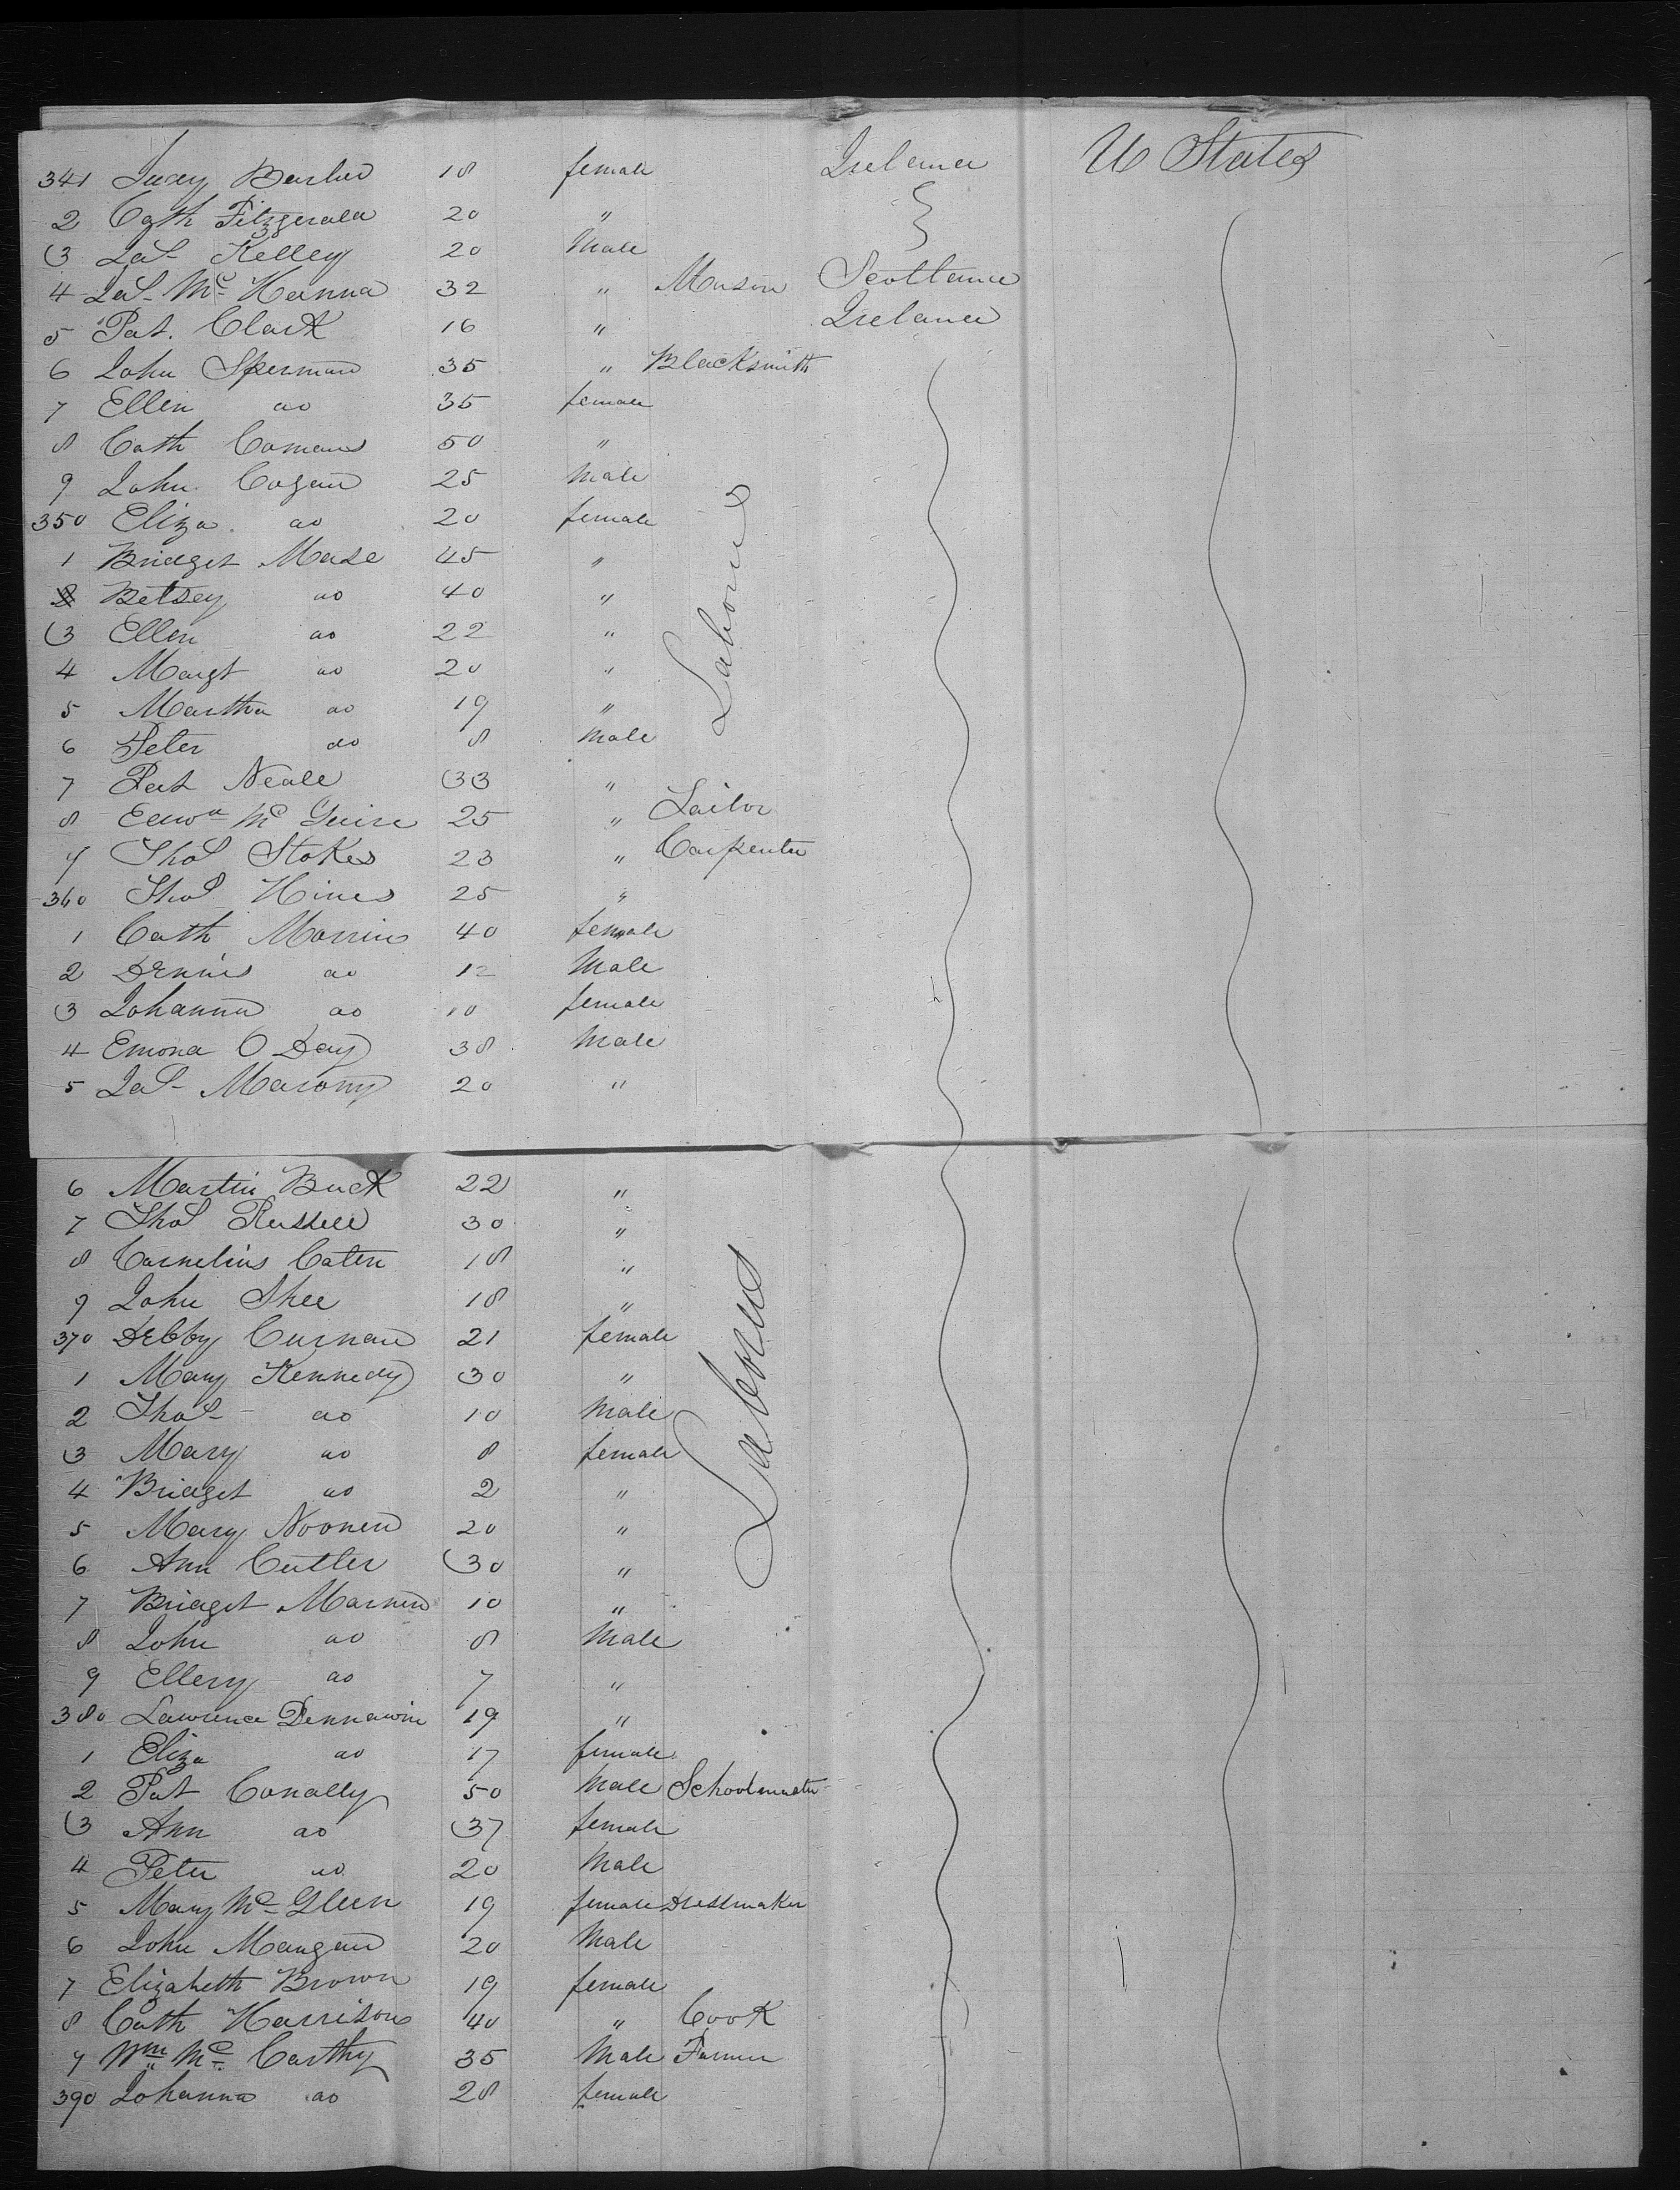 341 Judy Barber 18 female Ireland U States
2 Cath Fitzgerald 20 "
3 Jas Kelley 20 Male
4 Jas Mc Hanna 32 " Mason Scotland
5 Pat. Clark 16 " Ireland
6 John Sperman 35 " Blacksmith
7 Ellen do 35 female
8 Cath Comans 50 "
9 John Cogan 25 Male
350 Eliza do 20 female
1 Bridget Mase 45 "
2 Betsey do 40 "
3 Ellen do 22 "
4 Margt do 20 "
5 Martha do 19 "
6 Peter do 8 Male
Laborers
7 Pat Neall 33 "
8 Edwd Mc Guire 25 " Tailor
9 Thos Stokes 23 " Carpenter
360 Thos Hines 25 "
1 Cath Morrin 40 female
2 Dennis do 12 Male
3 Johanna do 10 female
4 Emond O Day 38 Male
5 Jas Marony 20 "
6 Martin Buck 22 "
7 Thos Russell 30 "
8 Cornelius Caten 18 "
9 John Shee 18 "
370 Debby Curnan 21 female
1 Mary Kennedy 30 "
2 Thos do 10 Male
3 Mary do 8 female
4 Bridget do 2 "
5 Mary Noonen 20 "
6 Ann Cutler 30 "
Laborers
7 Bridget Marnen 10 "
8 John do 8 Male
9 Ellery do 7 "
380 Lawrence Dennawin 19 "
1 Eliza do 17 female
2 Pat Conally 50 Male Schoolmaster
3 Ann do 37 female
4 Peter do 20 Male
5 Mary Mc Gleen 19 female Dressmaker
6 John Mangan 20 Male
7 Elizabeth Brown 19 female
8 Cath Harrison 40 " Cook
9 Wm Mc Carthy 35 Male Farmer
390 Johanna do 28 female